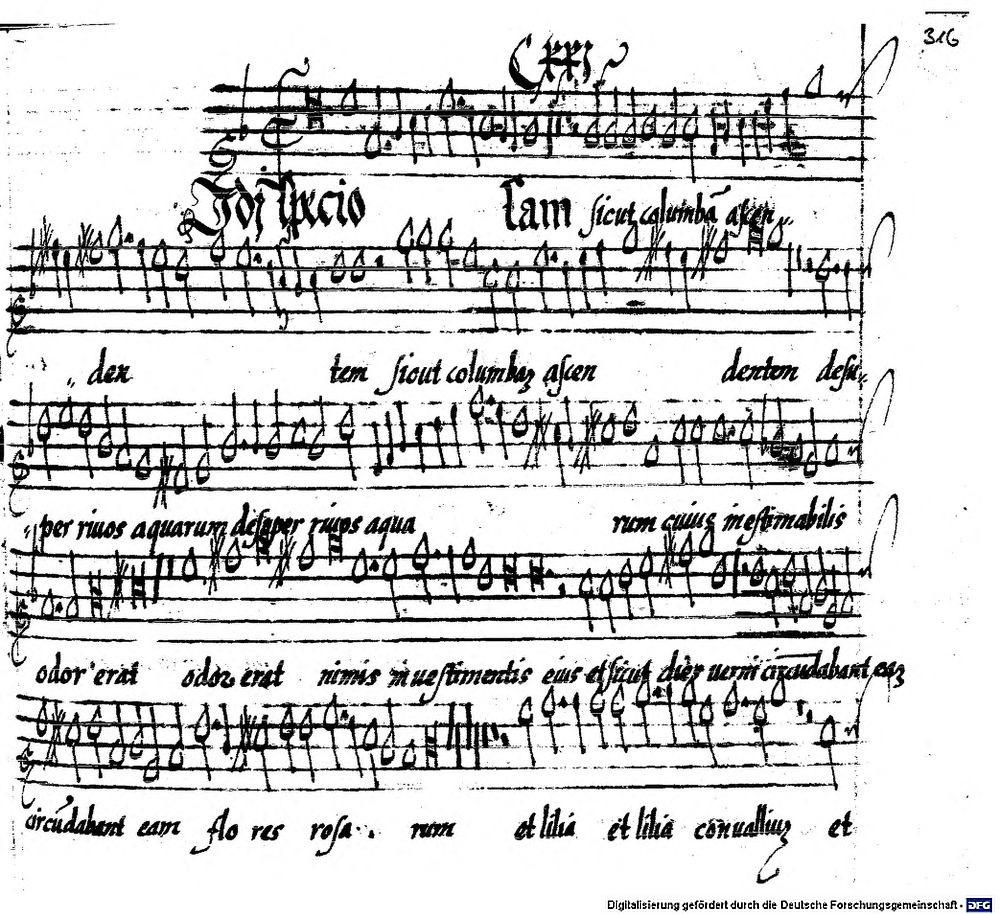 316
CXXI
Vidi specio sam sicut columbā ascen
den tem sicut columbaʒ ascen dentem desu
per riuos aquarum desuper riuos aqua rum cuius inestimabilis
odor erat odor erat nimis in uestimentis eius et sicut dies uerni circūdabant eaʒ
circūdabant eam flo res rosa rum et lilia et lilia conualliuʒ et
Digitalisierung gefördert durch die Deutsche Forschungsgemeinschaft - DFG